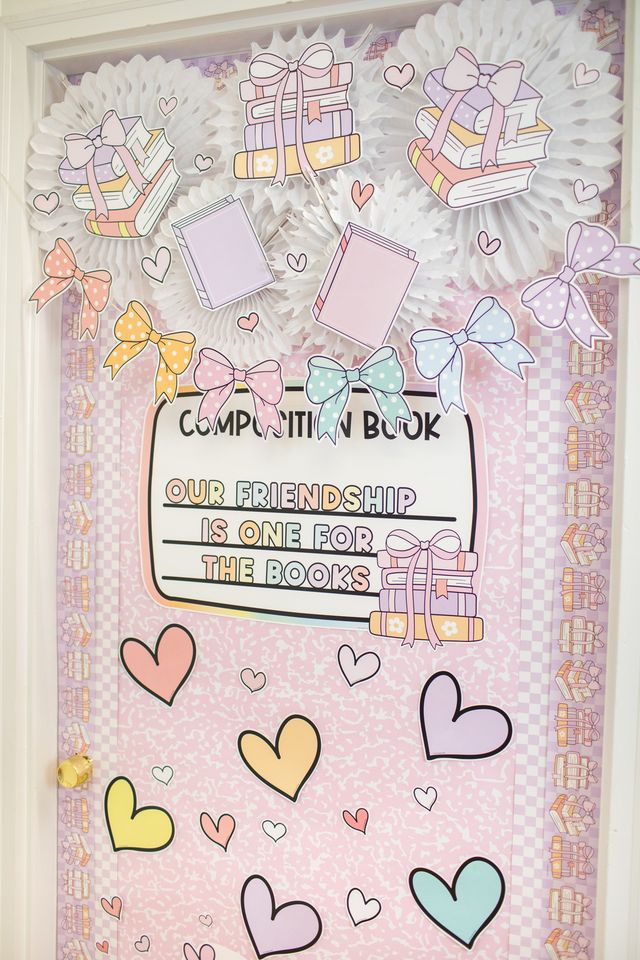 COMPOSITION BOOK
OUR FRIENDSHIP
IS ONE FOR
THE BOOKS